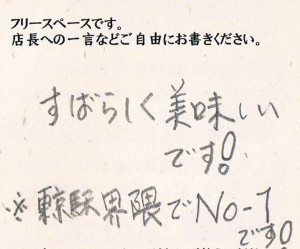 フリースペースです。
店長への一言などご自由にお書きください。
すばらしく美味しい
です!
※東京駅界隈でNo-1
です!